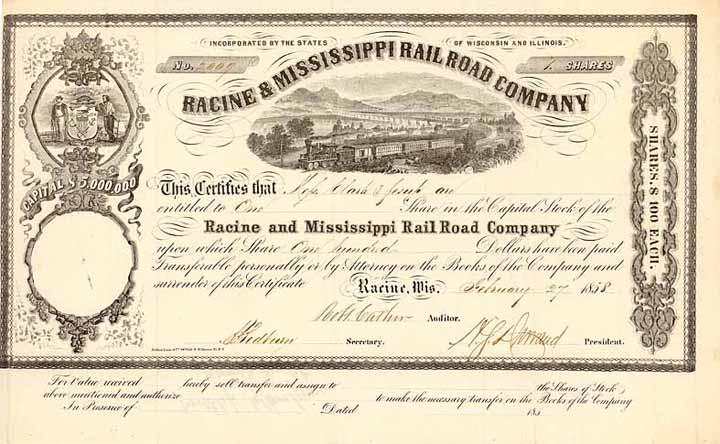 INCORPORATED BY THE STATES OF WISCONSIN AND ILLINOIS.
No. 2000 1 SHARES
RACINE & MISSISSIPPI RAIL ROAD COMPANY
CAPITAL $5,000,000
SHARES, $100 EACH.
This Certifies that Clark & Joseph are
entitled to One Share in the Capital Stock of the
Racine and Mississippi Rail Road Company
upon which Share One hundred Dollars have been paid
Transferable personally or by Attorney on the Books of the Company and
surrender of this Certificate Racine, Wis. February 27 1858
Auditor.
Secretary. President.
For Value received hereby sell transfer and assign to the Shares of Stock
above mentioned and authorize to make the necessary transfer on the Books of the Company
In Presence of Dated 185